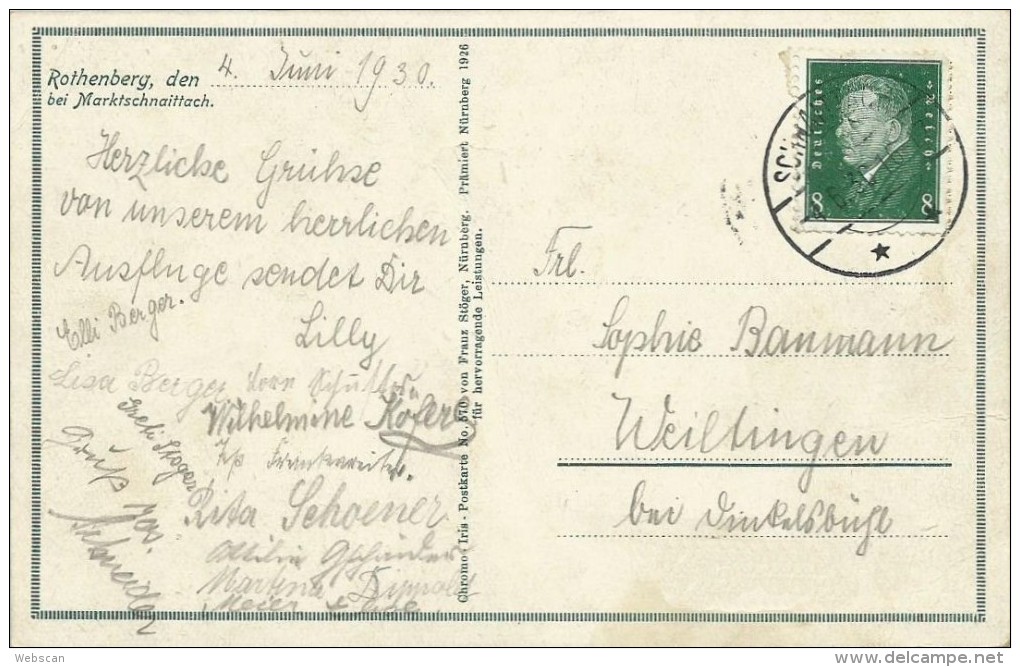 Rothenberg, den 4. Juni 1930.
bei Marktschnaittach.
Herzliche Grühse
von unserem herrlichen
Ausfluge sendet Dir
Lilly
Elli Berger.
Lisa Berger
Wilhelmine
Gruß
Schneider
Rita Schoener
Martina Dippold
Meier +
Chromo-Iris-Postkarte No. 570 von Franz Stöger, Nürnberg. Prämiert Nürnberg 1926
für hervorragende Leistungen.
Deutsches Reich
8 8
SCHNA
Frl.
Sophie Baumann
Weiltingen
bei Dinkelsbühl
Webscan
www.delcampe.net